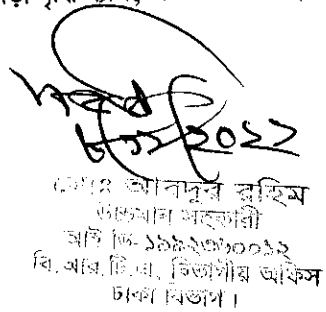 ২০২২
মোঃ আবদুর রহিম
উচ্চমান সহকারী
আই ডি- ১৯৯২৩৬০০১২
বি.আর.টি.এ. বিভাগীয় অফিস
ঢাকা বিভাগ।